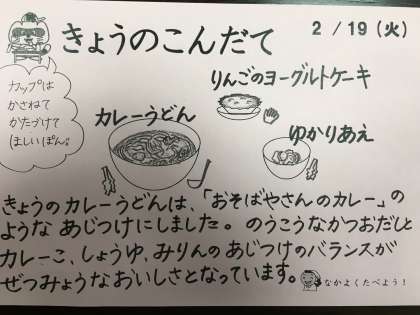 きょうのこんだて
2/19(火)
カップは
かさねて
かたづけて
ほしいぽん。
りんごのヨーグルトケーキ
カレーうどん
ゆかりあえ
きょうのカレーうどんは、「おそばやさんのカレー」の
ようなあじつけにしました。のうこうなかつおだしと
カレーこ、しょうゆ、みりんのあじつけのバランスが
ぜつみょうなおいしさとなっています。
なかよくたべよう!